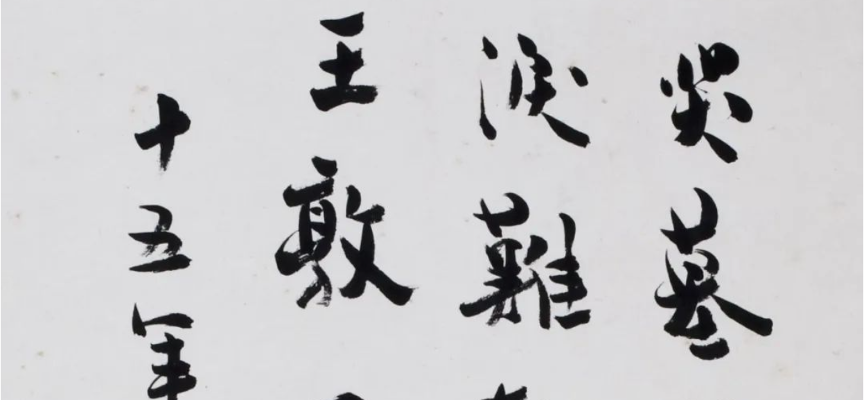 笑墓
淚難
王敦
十五年